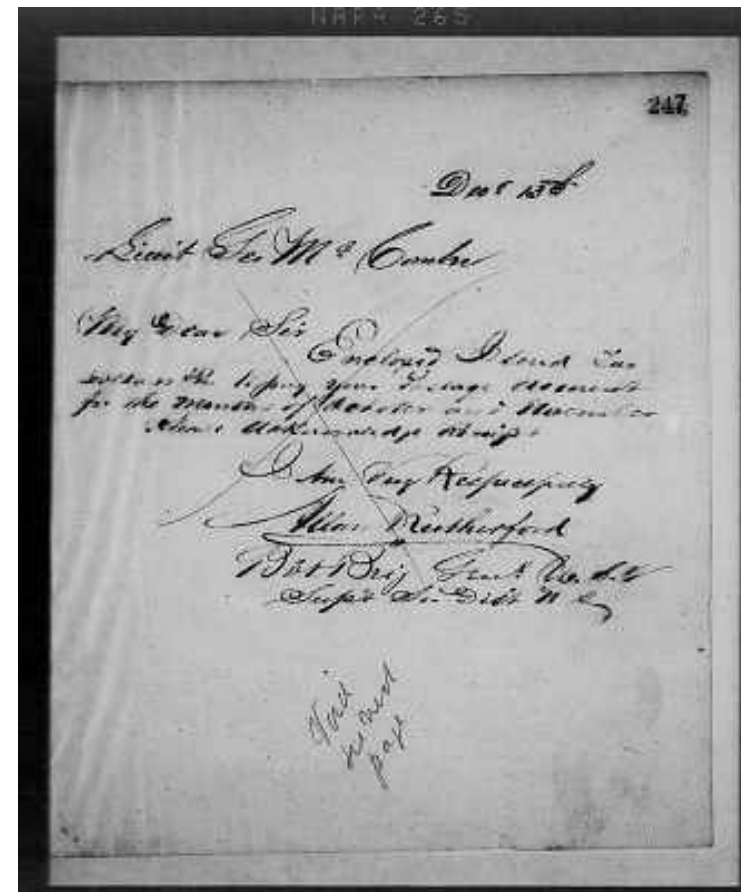 247
Decr 13th
Lieut Geo Mc Comber
My Dear Sir
Enclosed I send Ten
dollars to pay your Forage account
for the Months of October and November
Please Acknowledge Receipt
I Am Very Respectfully
Allan Rutherford
Bvt Brig Genl U.S.V.
Supt So Dist N C
Void
see next
page